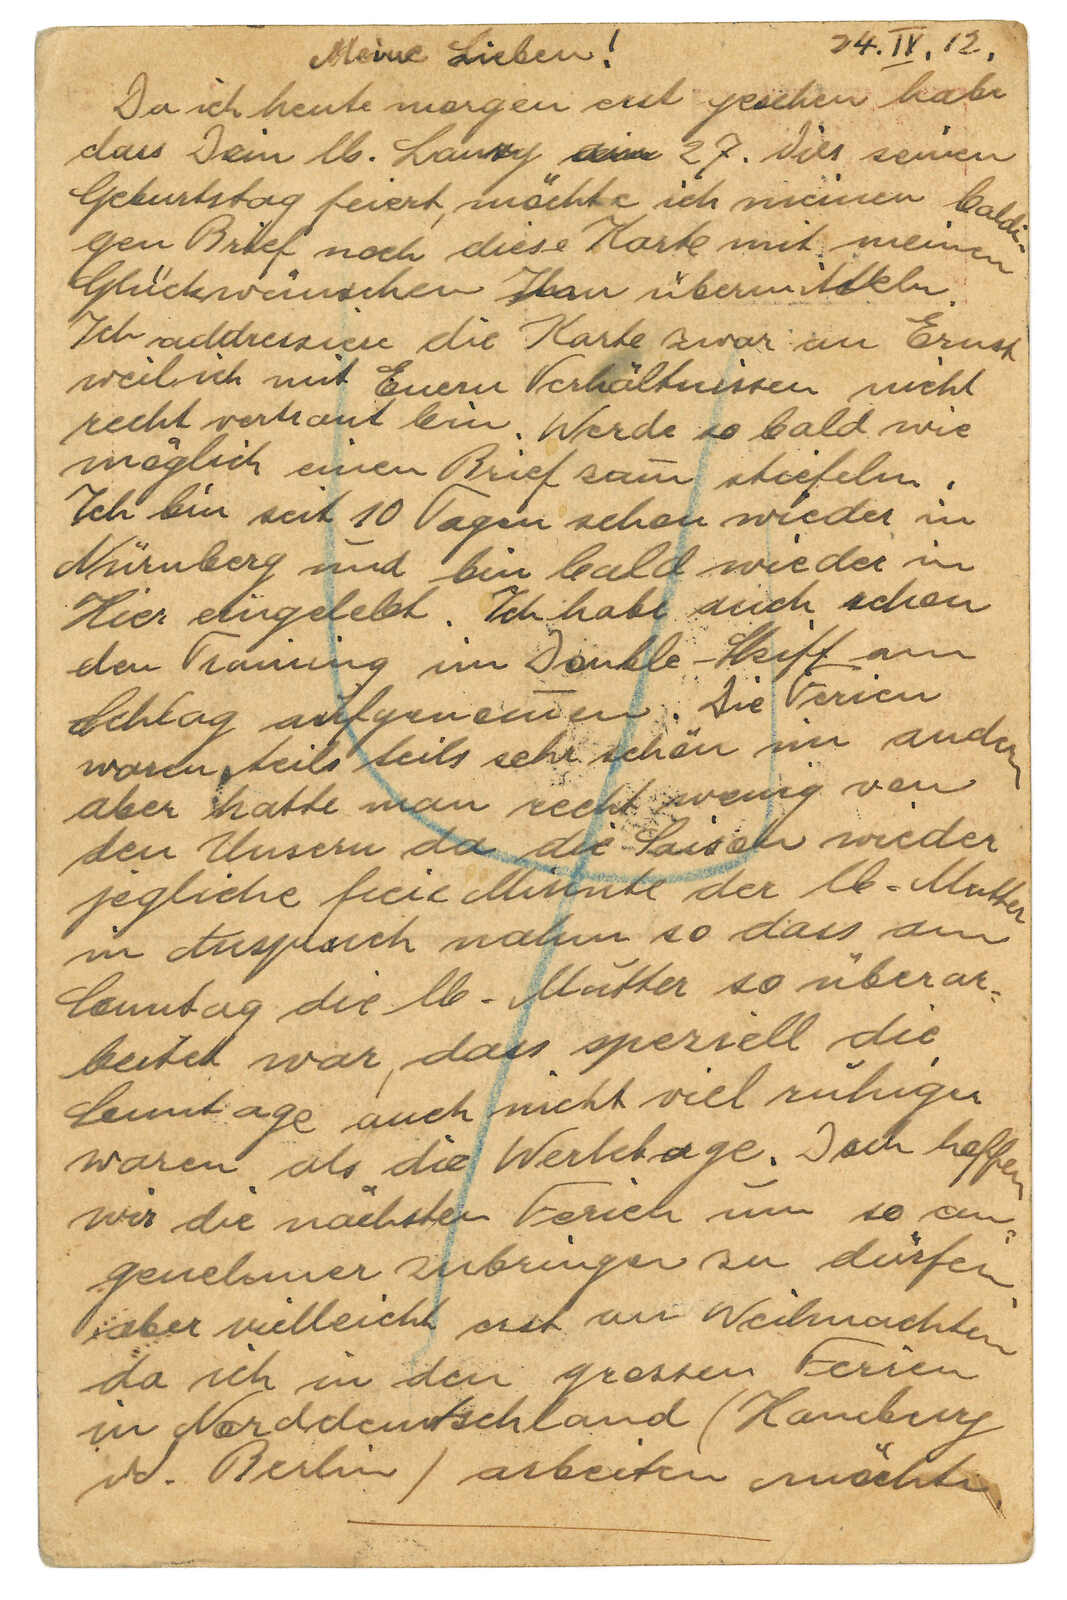 Meine Lieben! 24.IV.12.
Da ich heute morgen erst gesehen habe
dass Dein lb. 27. dies seinen
Geburtstag feiert, möchte ich meinen baldi-
gen Brief noch diese Karte mit meinen
Glückwünschen übermitteln.
Ich addressiere die Karte zwar an Ernst
weil ich mit Euern Verhältnissen nicht
recht vertraut bin. Werde so bald wie
möglich einen Brief zam̅ stiefeln.
Ich bin seit 10 Tagen schon wieder in
Nürnberg und bin bald wieder in
Hier eingelebt. Ich habe auch schon
den Training im Double-Skiff am
Schlag aufgenom̅en. Die Ferien
waren teils teils sehr schön im andern
aber hatte man recht wenig von
den Unsern da die Saison wieder
jegliche freie Minute der lb-Mutter
in Anspruch nahm so dass am
Sonntag die lb-Mutter so überar-
beitet war, dass speziell die
Sonntage auch nicht viel ruhiger
waren als die Werktage. Doch hoffen
wir die nächsten Ferien um so an-
genehmer zubringen zu dürfen
aber vielleicht erst an Weihnachten
da ich in den grossen Ferien
in Norddeutschland (Hamburg
od. Berlin) arbeiten möchte.